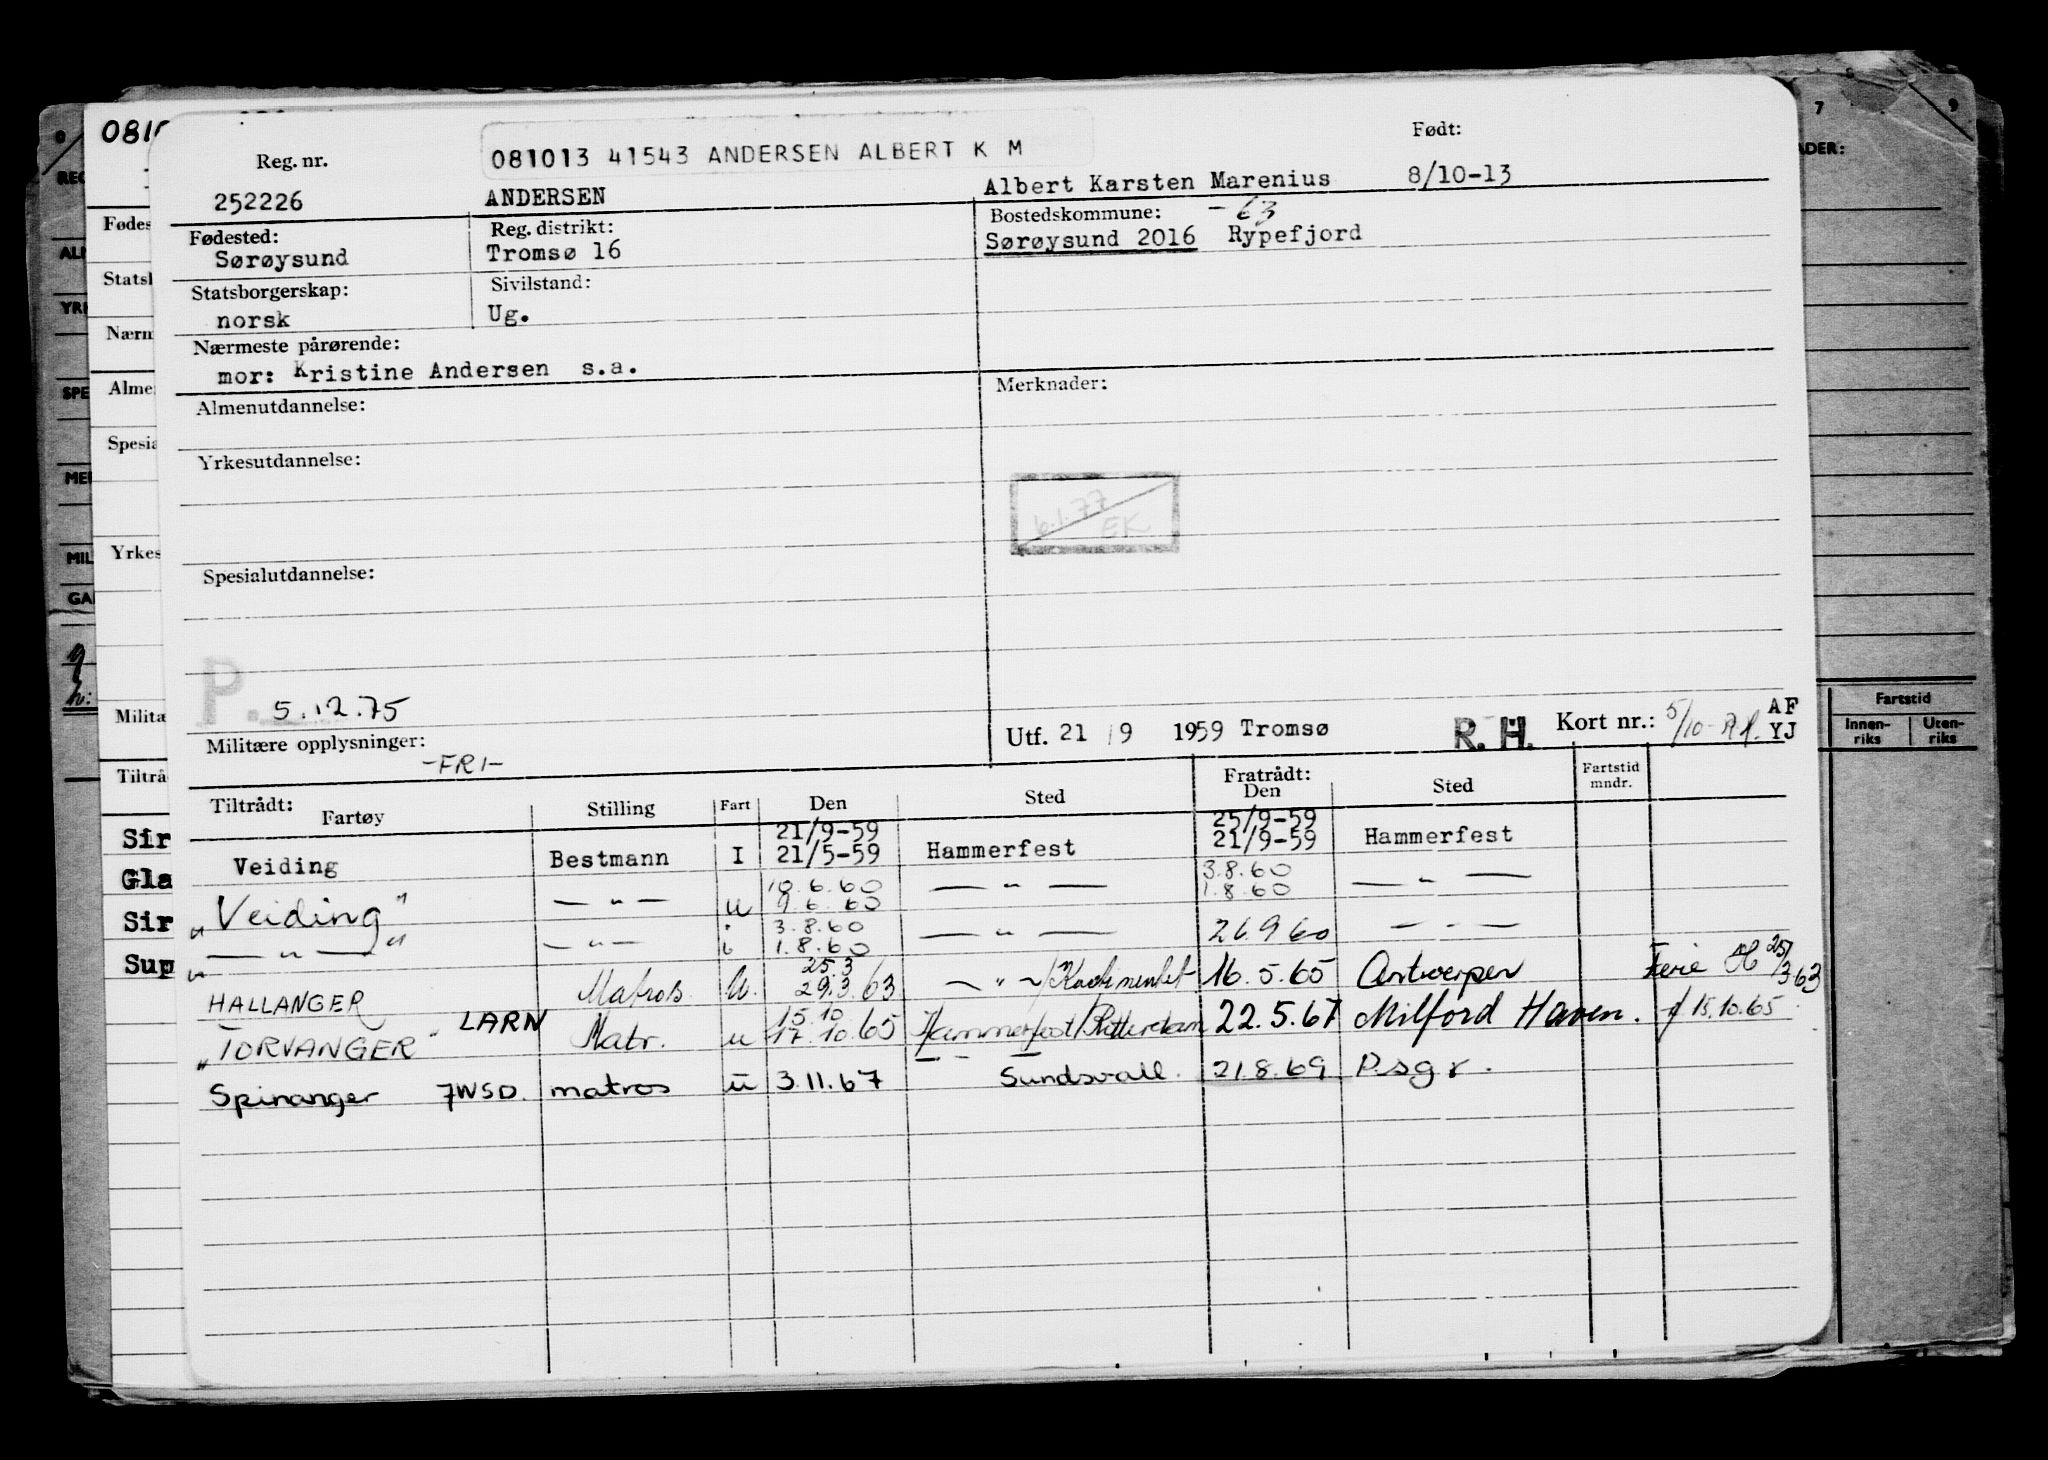 Reg. nr.
081013 41543 ANDERSEN ALBERT K M
Født:
252226 ANDERSEN Albert Karsten Marenius 8/10-13
Fødested: Reg. distrikt: Bostedskommune: - 63
Sørøysund Tromsø 16 Sørøysund 2016 Rypefjord
Statsborgerskap: Sivilstand:
norsk Ug.
Nærmeste pårørende:
mor: Kristine Andersen s.a.
Almenutdannelse: Merknader:
Yrkesutdannelse:
6.1.77
EK
Spesialutdannelse:
P. 5.12.75
Militære opplysninger: Utf. 21/9 1959 Tromsø R. H. Kort nr.: 5/10- AF
YJ
-FRI-
Tiltrådt: Fratrådt:
Fartøy Stilling Fart Den Sted Den Sted Fartstid mndr.
21/9-59 25/9-59
Veiding Bestmann I 21/5-59 Hammerfest 21/9-59 Hammerfest
10.6.60 3.8.60
"Veiding" — " — u 9.6.60 — " — 1.8.60 — " —
3.8.60
" — " — " — " — i 1.8.60 — " — 26.9.60 - " -
25.3
HALLANGER Matros U. 29.3.63 — " — / 16.5.65 Antwerpen Ferie 25/3.63
15.10
"TORVANGER" LARN Matr. u 17.10.65 Hammerfest/Rotterdam 22.5.67 Milford Haven. f 15.10.65
Spinanger 7WSD. matros u 3.11.67 — - — Sundsvall. 21.8.69 Psgr.
0810
Fødes
Statsl
Nærm
Alme
Spesia
Yrkes
Militæ
Tiltrå
Sir
Gla
Sir
Sup
REG
ALM
YRK
SPE
MER
MIL
GA
7
9
ADER:
Fartstid
Innen-
riks
Uten-
riks